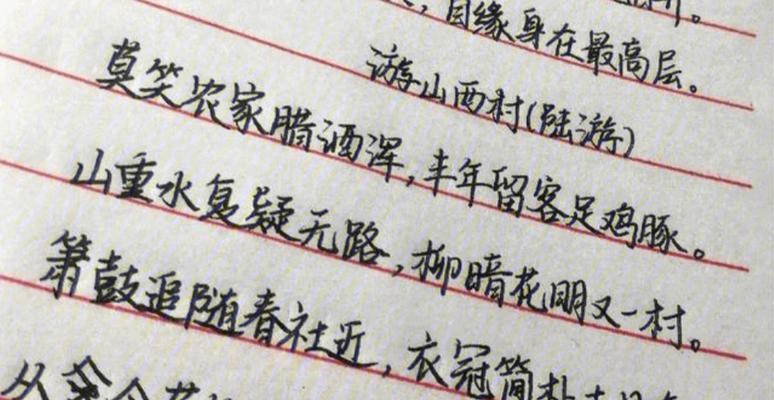 ，自缘身在最高层。
游山西村(陆游)
莫笑农家腊酒浑，丰年留客足鸡豚。
山重水复疑无路，柳暗花明又一村。
箫鼓追随春社近，衣冠简朴
从